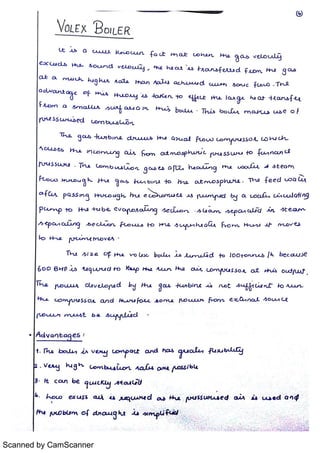 VOLEX BOILER
it is a well known fact that when the gas velocity
exceeds the sound velocity, the heat is transferred from the gas
at a much higher rate than rates achieved with sonic flow. The
advantage of this theory is taken to effect the large heat transfer
from a smaller surface area in this boiler. This boiler makes use of
pressurised combustion
The gas turbine drives the axial flow compressor which
raises the incoming air from atmospheric pressure to furnance
pressure. The combustion gases after heating the water & steam
flow through the gas turbine to the atmosphere. The feed water
after passing through the economiser is pumped by a water circulating
pump to the tube evaporating section. steam separated in steam
separating section flows to the superheater from there it moves
to the primemover.
The size of the volex boiler is limited to 100tonnes/h because
600 BHP is required to run the air compressor at this output.
The power developed by the gas turbine is not sufficient to run
the compressor and therefore some power from external source
power must be supplied.
Advantages:
1. The boiler is very compact and has greater flexibility
2. Very high combustion rates are possible
3. It can be quickly started
4. low excess air is required as the pressurised air is used and
the problem of draught is simplified
Scanned by CamScanner